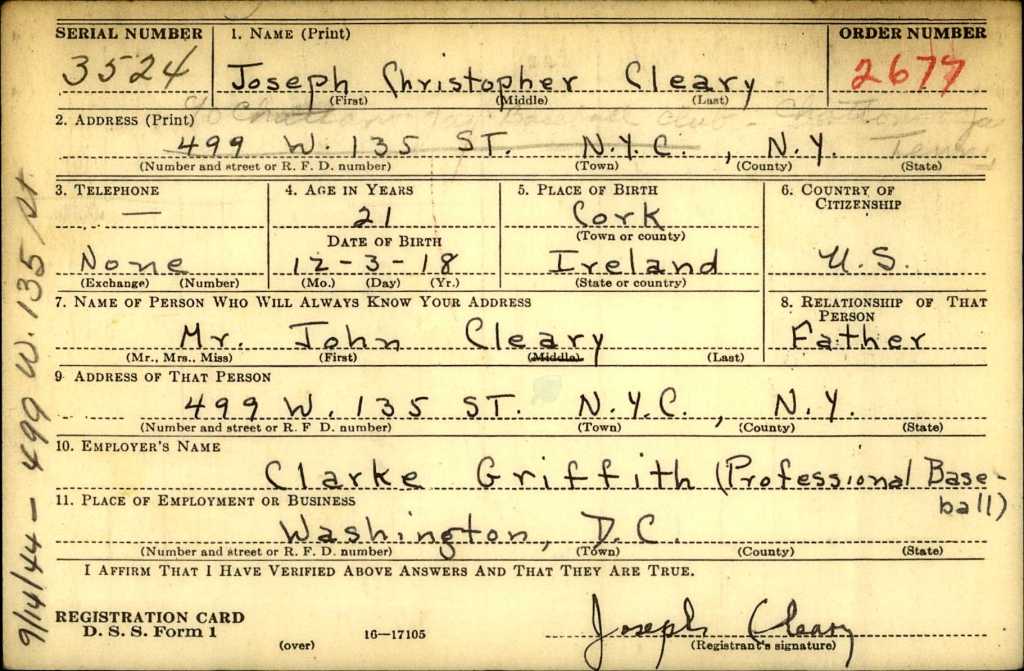 SERIAL NUMBER 1. NAME (Print) ORDER NUMBER
3524 Joseph Christopher Cleary 2677
(First) (Middle) (Last)
Baseball Club
2. ADDRESS (Print)
499 W. 135 ST. N.Y.C. , N.Y. Tenn
(Number and street or R. F. D. number) (Town) (County) (State)
3. TELEPHONE 4. AGE IN YEARS 5. PLACE OF BIRTH 6. COUNTRY OF CITIZENSHIP
— 21 Cork
DATE OF BIRTH (Town or county)
None 12-3-18 Ireland U.S.
(Exchange) (Number) (Mo.) (Day) (Yr.) (State or country)
7. NAME OF PERSON WHO WILL ALWAYS KNOW YOUR ADDRESS 8. RELATIONSHIP OF THAT PERSON
Mr. John Cleary Father
(Mr., Mrs., Miss) (First) (Middle) (Last)
9 ADDRESS OF THAT PERSON
499 W. 135 ST. N.Y.C. , N.Y.
(Number and street or R. F D. number) (Town) (County) (State)
10. EMPLOYER'S NAME
Clarke Griffith (Professional Base-
ball)
11. PLACE OF EMPLOYMENT OR BUSINESS
Washington, D.C.
(Number and street or R. F. D. number) (Town) (County) (State)
I AFFIRM THAT I HAVE VERIFIED ABOVE ANSWERS AND THAT THEY ARE TRUE.
REGISTRATION CARD
D. S. S. Form 1
(over) 16—17105
Joseph Cleary
(Registrant's signature)
9/14/44 — 499 W. 135 St